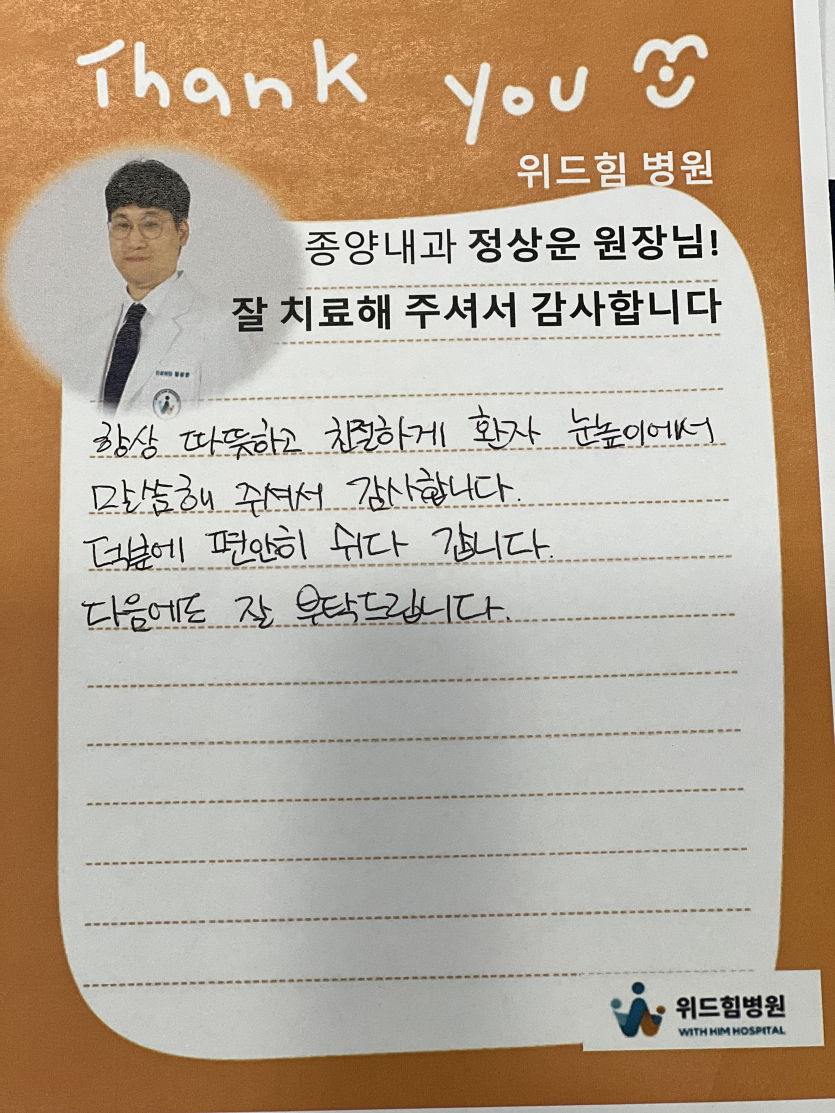 Thank you
위드힘 병원
종양내과 정상운 원장님!
잘 치료해 주셔서 감사합니다
항상 따뜻하고 친절하게 환자 눈높이에서
말씀해 주셔서 감사합니다.
덕분에 편안히 쉬다 갑니다.
다음에도 잘 부탁드립니다.
위드힘병원
WITH HIM HOSPITAL